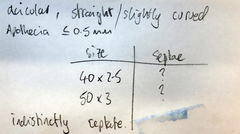 acicular, straight/slightly curved
Apothecia ≤ 0.5 mm
size septae
40 x 2.5 ?
50 x 3 ?
indistinctly septate.